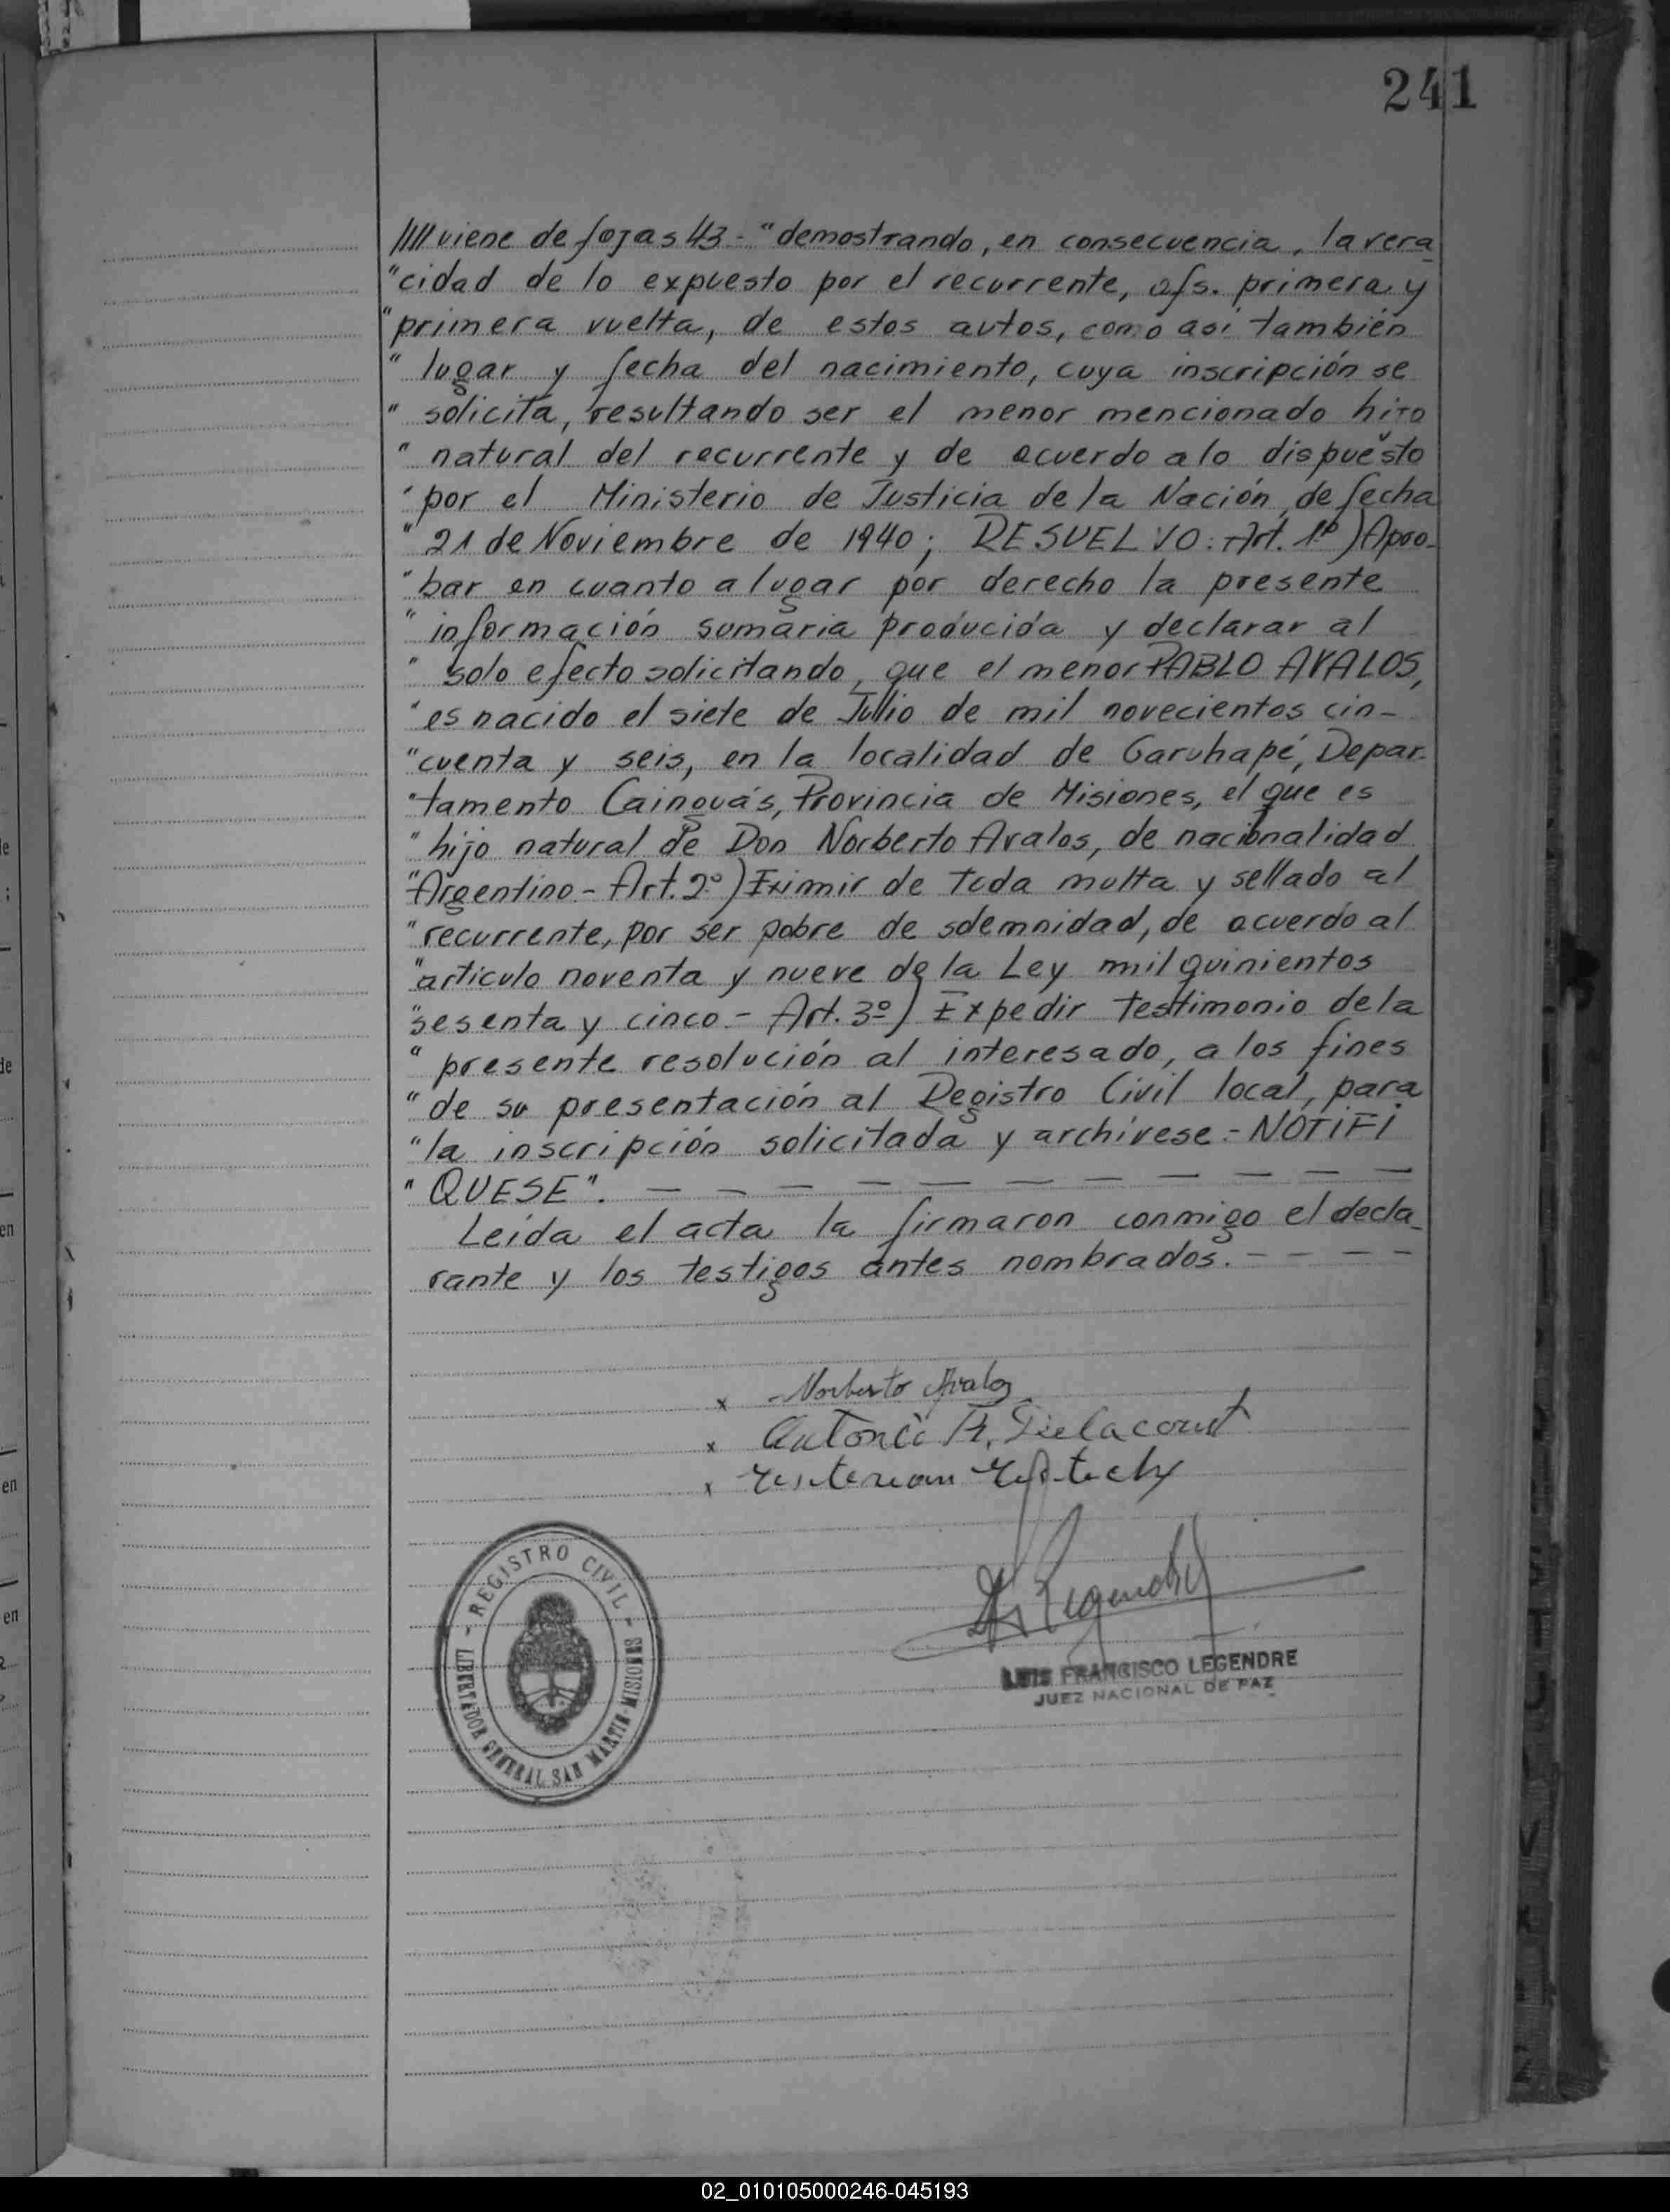 241
//// viene de fojas 43 - "demostrando, en consecuencia, la vera
"cidad de lo expuesto por el recurrente, a fs. primera y
"primera vuelta, de estos autos, como así también
" lugar y fecha del nacimiento, cuya inscripción se
" solicita, resultando ser el menor mencionado hijo
" natural del recurrente y de acuerdo a lo dispuesto
" por el Ministerio de Justicia de la Nación, de fecha
" 21 de Noviembre de 1940; RESUELVO: Art. 1º) Apro-
"bar en cuanto a lugar por derecho la presente
" información sumaria producida y declarar al
" solo efecto solicitando, que el menor PABLO AVALOS,
"es nacido el siete de Julio de mil novecientos cin-
"cuenta y seis, en la localidad de Garuhapé, Depar-
"tamento Cainguás, Provincia de Misiones, el que es
" hijo natural de Don Norberto Avalos, de nacionalidad
"Argentino.- Art. 2º) Eximir de toda multa y sellado al
"recurrente, por ser pobre de solemnidad, de acuerdo al
"articulo noventa y nueve de la Ley mil quinientos
"sesenta y cinco.- Art. 3º) Expedir testimonio de la
" presente resolución al interesado, a los fines
"de su presentación al Registro Civil local, para
"la inscripción solicitada y archívese.- NOTIFI
" QUESE". — — — — — — — — — —
Leída el acta la firmaron conmigo el decla_
rante y los testigos antes nombrados. - - - -
x Norberto Avalos
x Antonio
x
- REGISTRO CIVIL -
LIBERTADOR GENERAL SAN MARTIN MISIONES
LUIS FRANCISCO LEGENDRE
JUEZ NACIONAL DE PAZ
02_010105000246-045193